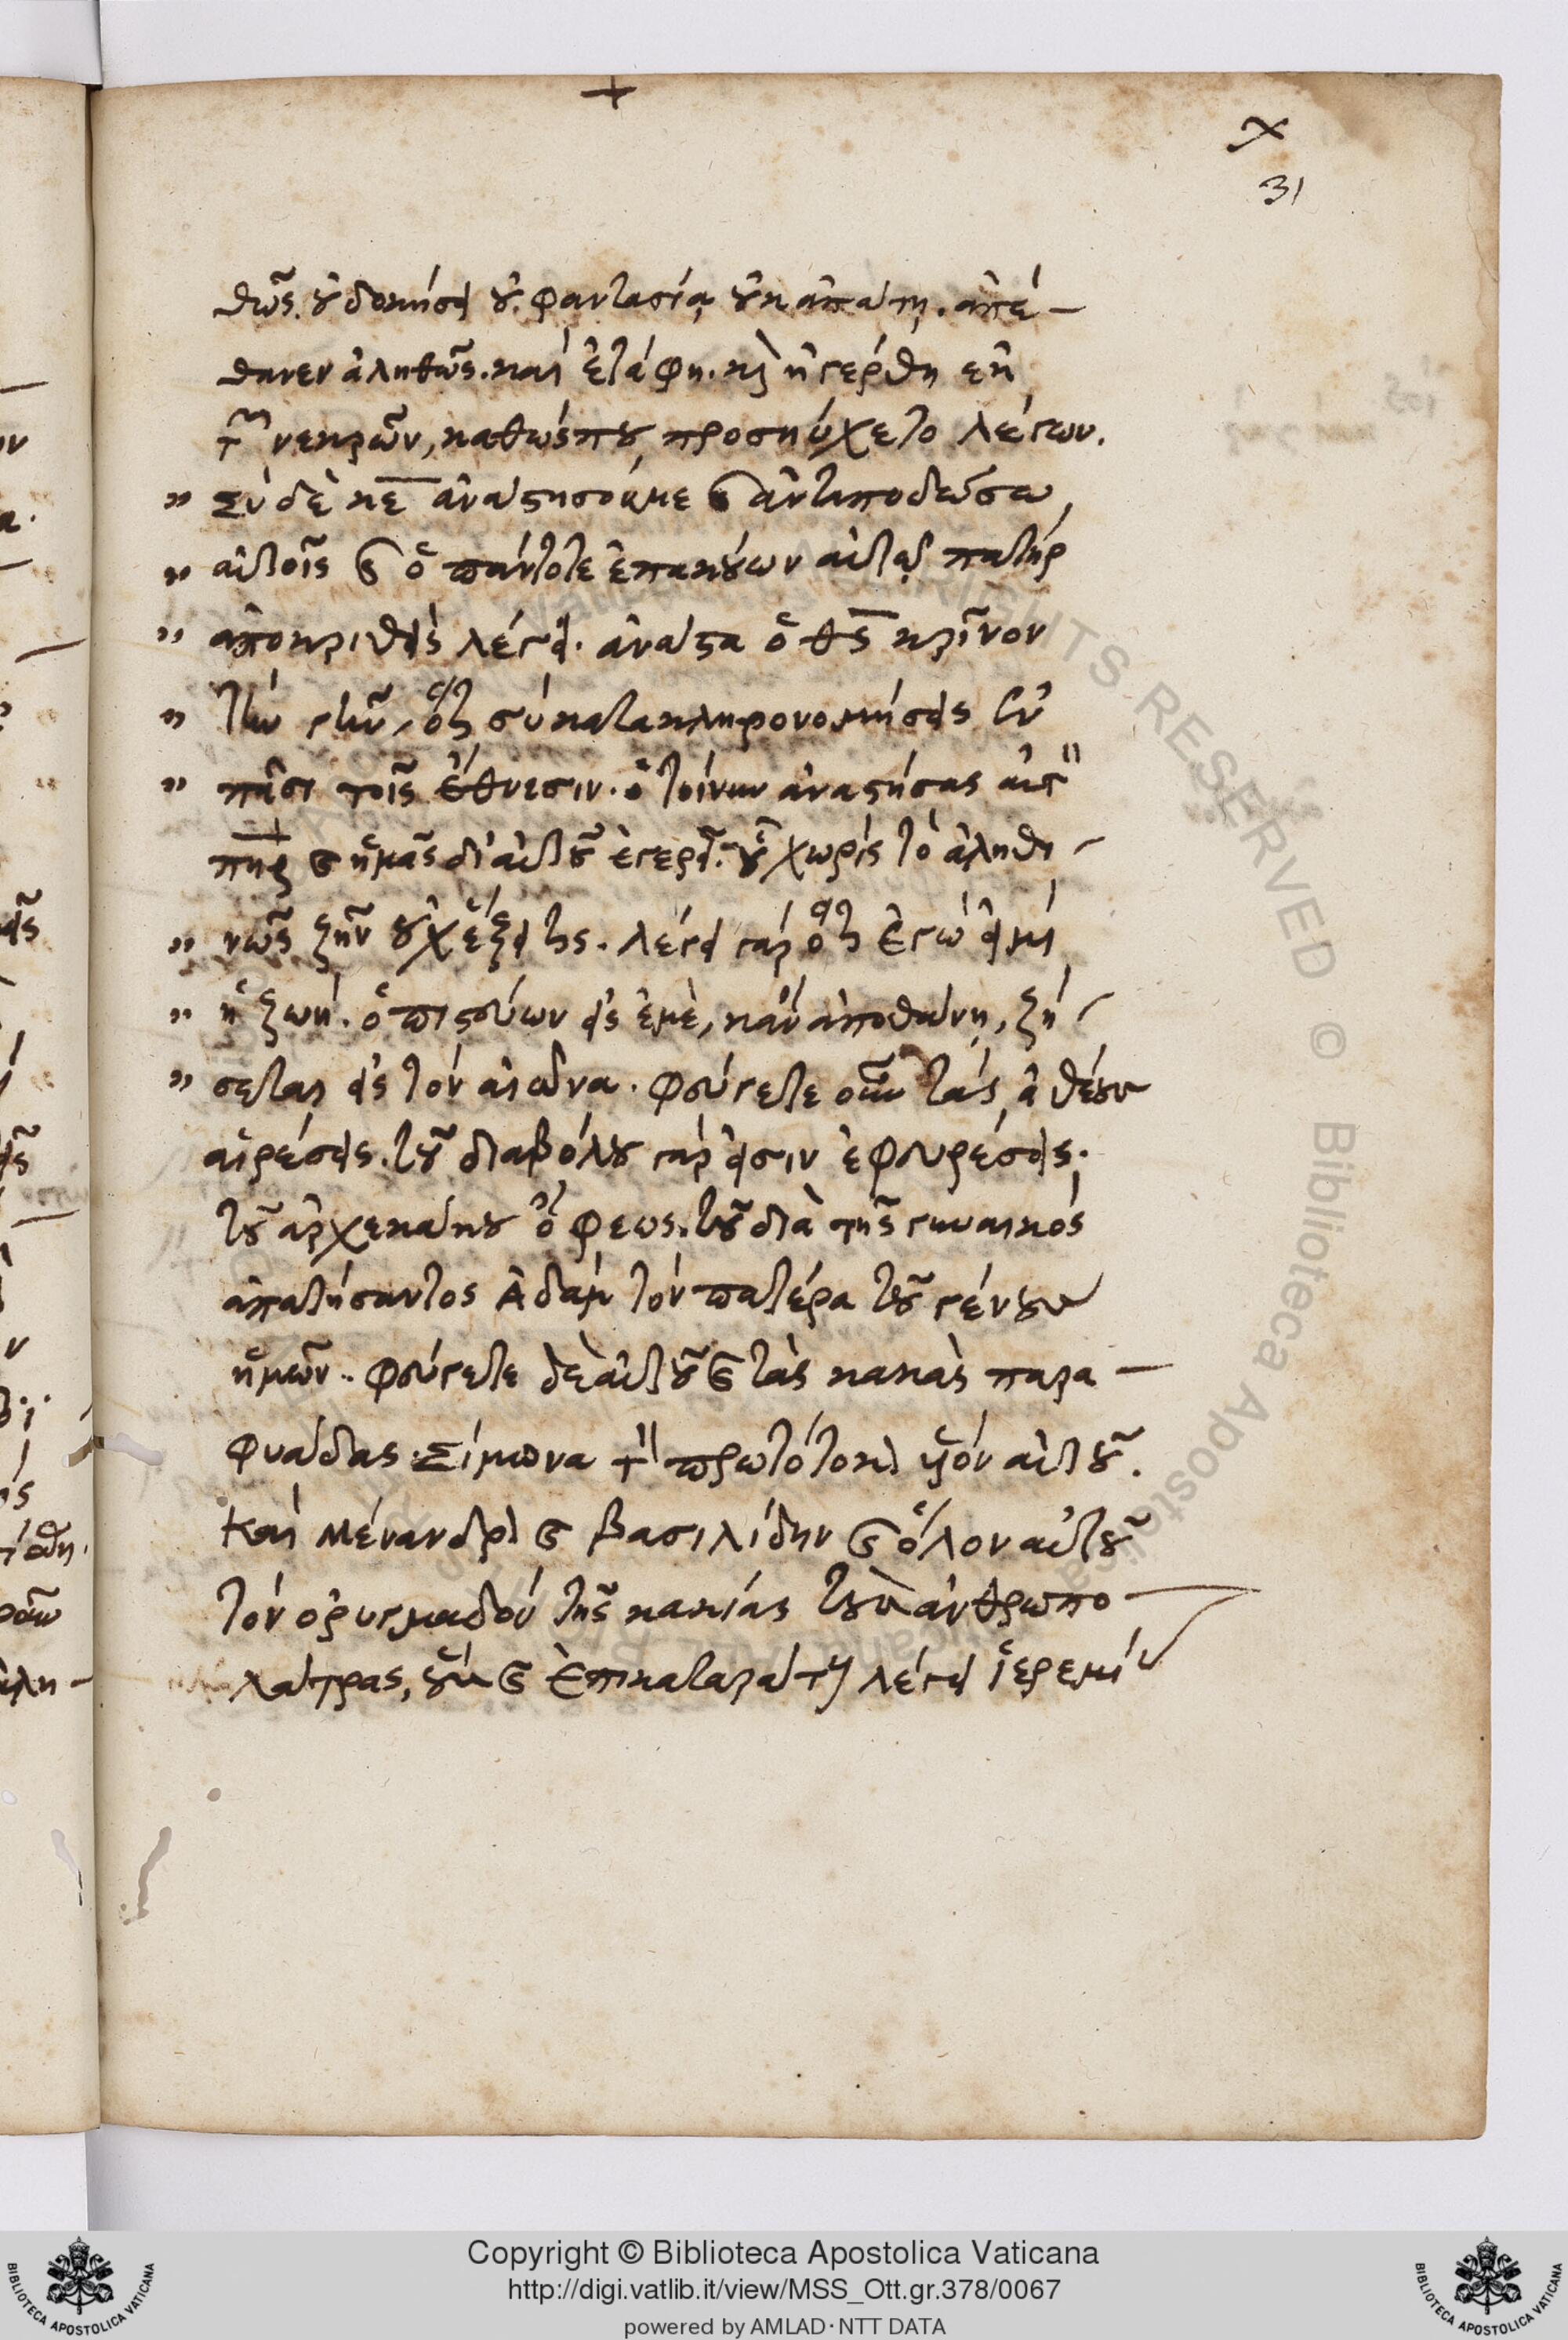 +
χ
31
θῶς. οὐ δοκήσει οὐ φαντασίᾳ οὐκ ἀπάτῃ. ἀπέ-
θανεν ἀληθῶς. καὶ ἐτάφη. κ̀ ἠγέρθη ἐκ
τῶν νεκρῶν, καθώς που προσηύχετο λέγων.
" Σὺ δὲ κε̅ ἀνάστησόν με κ̀ ἀνταποδώσω
" αὐτοῖς κ̀ ὁ πάντοτε ἐπακούων αὐτοῦ πατὴρ
" ἀποκριθεὶς λέγει. ἀνάστα ὁ θς̅ κρῖνον
" τὴν γῆν, ὅτι σὺ κατακληρονομήσεις ἐν
" πᾶσι τοῖς ἔθνεσιν. ὁ τοίνυν ἀναστήσας αὐτὸν
πη̅ρ κ̀ ἡμᾶς δι' αὐτοῦ ἐγερεῖ. οὗ χωρὶς τὸ ἀληθι-
" νῶς ζῆν οὐχ ἕξει τις. λέγει γὰρ ὅτι Ἐγώ εἰμι
" ἡ ζωή. ὁ πιστεύων εἰς ἐμὲ, κἂν ἀποθάνῃ, ζή-
" σεται εἰς τὸν αἰῶνα. φεύγετε οὖν τὰς ἀθέους
αἱρέσεις. τοῦ διαβόλου γάρ εἰσιν ἐφευρέσεις.
τοῦ ἀρχεκάκου ὄφεως. τοῦ διὰ τῆς γυναικὸς
ἀπατήσαντος Ἀδὰμ τὸν πατέρα τοῦ γένους
ἡμῶν. φεύγετε δὲ αὐτοῦ κ̀ τὰς κακὰς παρα-
φυάδας. Σίμωνα τὸν πρωτότοκον υἱὸν αὐτοῦ.
Καὶ Μένανδρον κ̀ βασιλίδην κ̀ ὅλον αὐτοῦ
τὸν ὁρυγμαδὸν τῆς κακίας τοὺς ἀνθρωπο-
λάτρας, οὓς κ̀ ἐπικαταράτους λέγει ἱερεμί
Copyright © Biblioteca Apostolica Vaticana
http://digi.vatlib.it/view/MSS_Ott.gr.378/0067
powered by AMLAD·NTT DATA